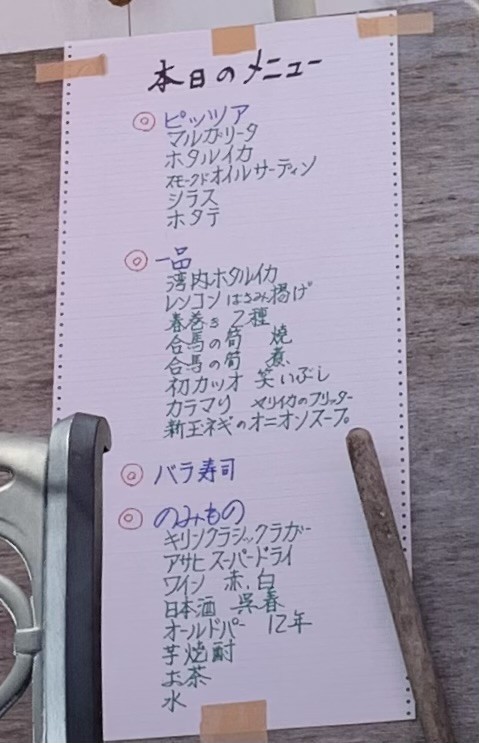 本日のメニュー
◎ ピッツア
マルガリータ
ホタルイカ
スモークドオイルサーディン
シラス
ホタテ
◎ 一品
湾内ホタルイカ
レンコンはさみ揚げ
春巻き 2種
合馬の筍 焼
合馬の筍 煮
初カツオ 藁いぶし
カラマリ ヤリイカのフリッター
新玉ネギのオニオンスープ
◎ バラ寿司
◎ のみもの
キリンクラシックラガー
アサヒスーパードライ
ワイン 赤,白
日本酒 呉春
オールドパー 12年
芋焼酎
お茶
水